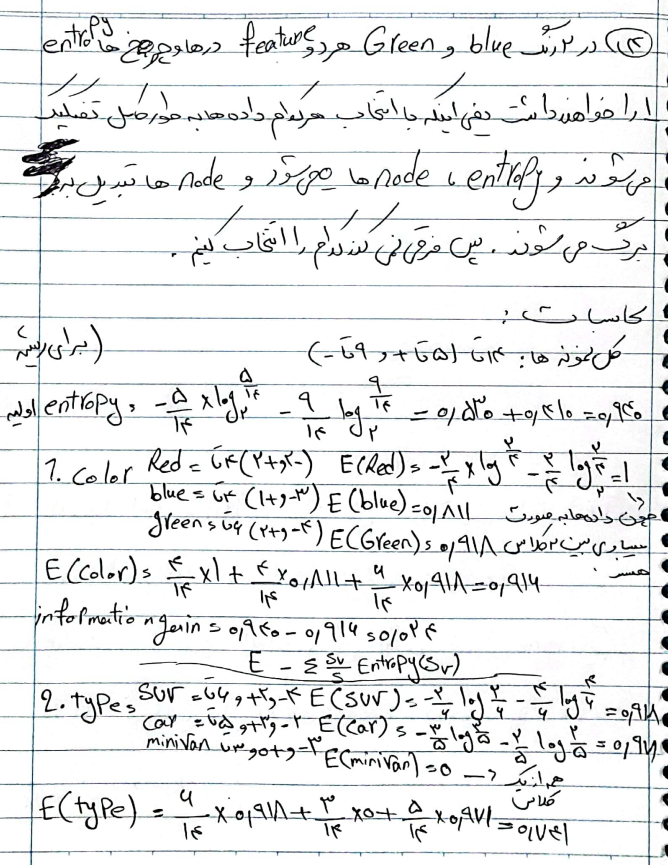 (۱۴) در ۲ رنگ blue و Green هر دو feature درها و چرخ ها entropy
۱ را خواهند داشت یعنی اینکه با انتخاب هرکدام داده ها به طور کامل تفکیک
می شوند و entropy ، node ها صفر می شود و node ها تبدیل به
برگ می شوند . پس فرقی نمی کند کدام را انتخاب کنیم .
محاسبات :
کل نمونه ها : ۱۴ تا (۵ تا + و ۹ تا -) (برای ریشه
entropy اولیه = -۵/۱۴ × log₂ ۵/۱۴ - ۹/۱۴ log₂ ۹/۱۴ = ۰٫۵۳۰ + ۰٫۴۱۰ = ۰٫۹۴۰
1. Color Red = ۴ تا (۲+ و ۲-) E(Red) = -۲/۴ × log ۲/۴ - ۲/۴ log₂ ۲/۴ = ۱
blue = ۴ تا (۱+ و ۳-) E(blue) = ۰٫۸۱۱ چون داده ها به صورت
green = ۶ تا (۲+ و ۴-) E(Green) = ۰٫۹۱۸ مساوی بین ۲ کلاس
هستند .
E(Color) = ۴/۱۴ × ۱ + ۴/۱۴ × ۰٫۸۱۱ + ۶/۱۴ × ۰٫۹۱۸ = ۰٫۹۱۶
information gain = ۰٫۹۴۰ - ۰٫۹۱۶ = ۰٫۰۲۴
E - Σ Sv/S Entropy(Sv)
2. type = SUV = ۶ تا و +۲ و -۴ E(SUV) = -۲/۶ log ۲/۶ - ۴/۶ log ۴/۶ = ۰٫۹۱۸
car = ۵ تا و +۳ و -۲ E(car) = -۳/۵ log ۳/۵ - ۲/۵ log ۲/۵ = ۰٫۹۷۱
minivan ۳ تا و ۰+ و -۳ E(minivan) = 0 → همه از یک
کلاس
E(type) = ۶/۱۴ × ۰٫۹۱۸ + ۳/۱۴ × ۰ + ۵/۱۴ × ۰٫۹۷۱ = ۰٫۷۴۱